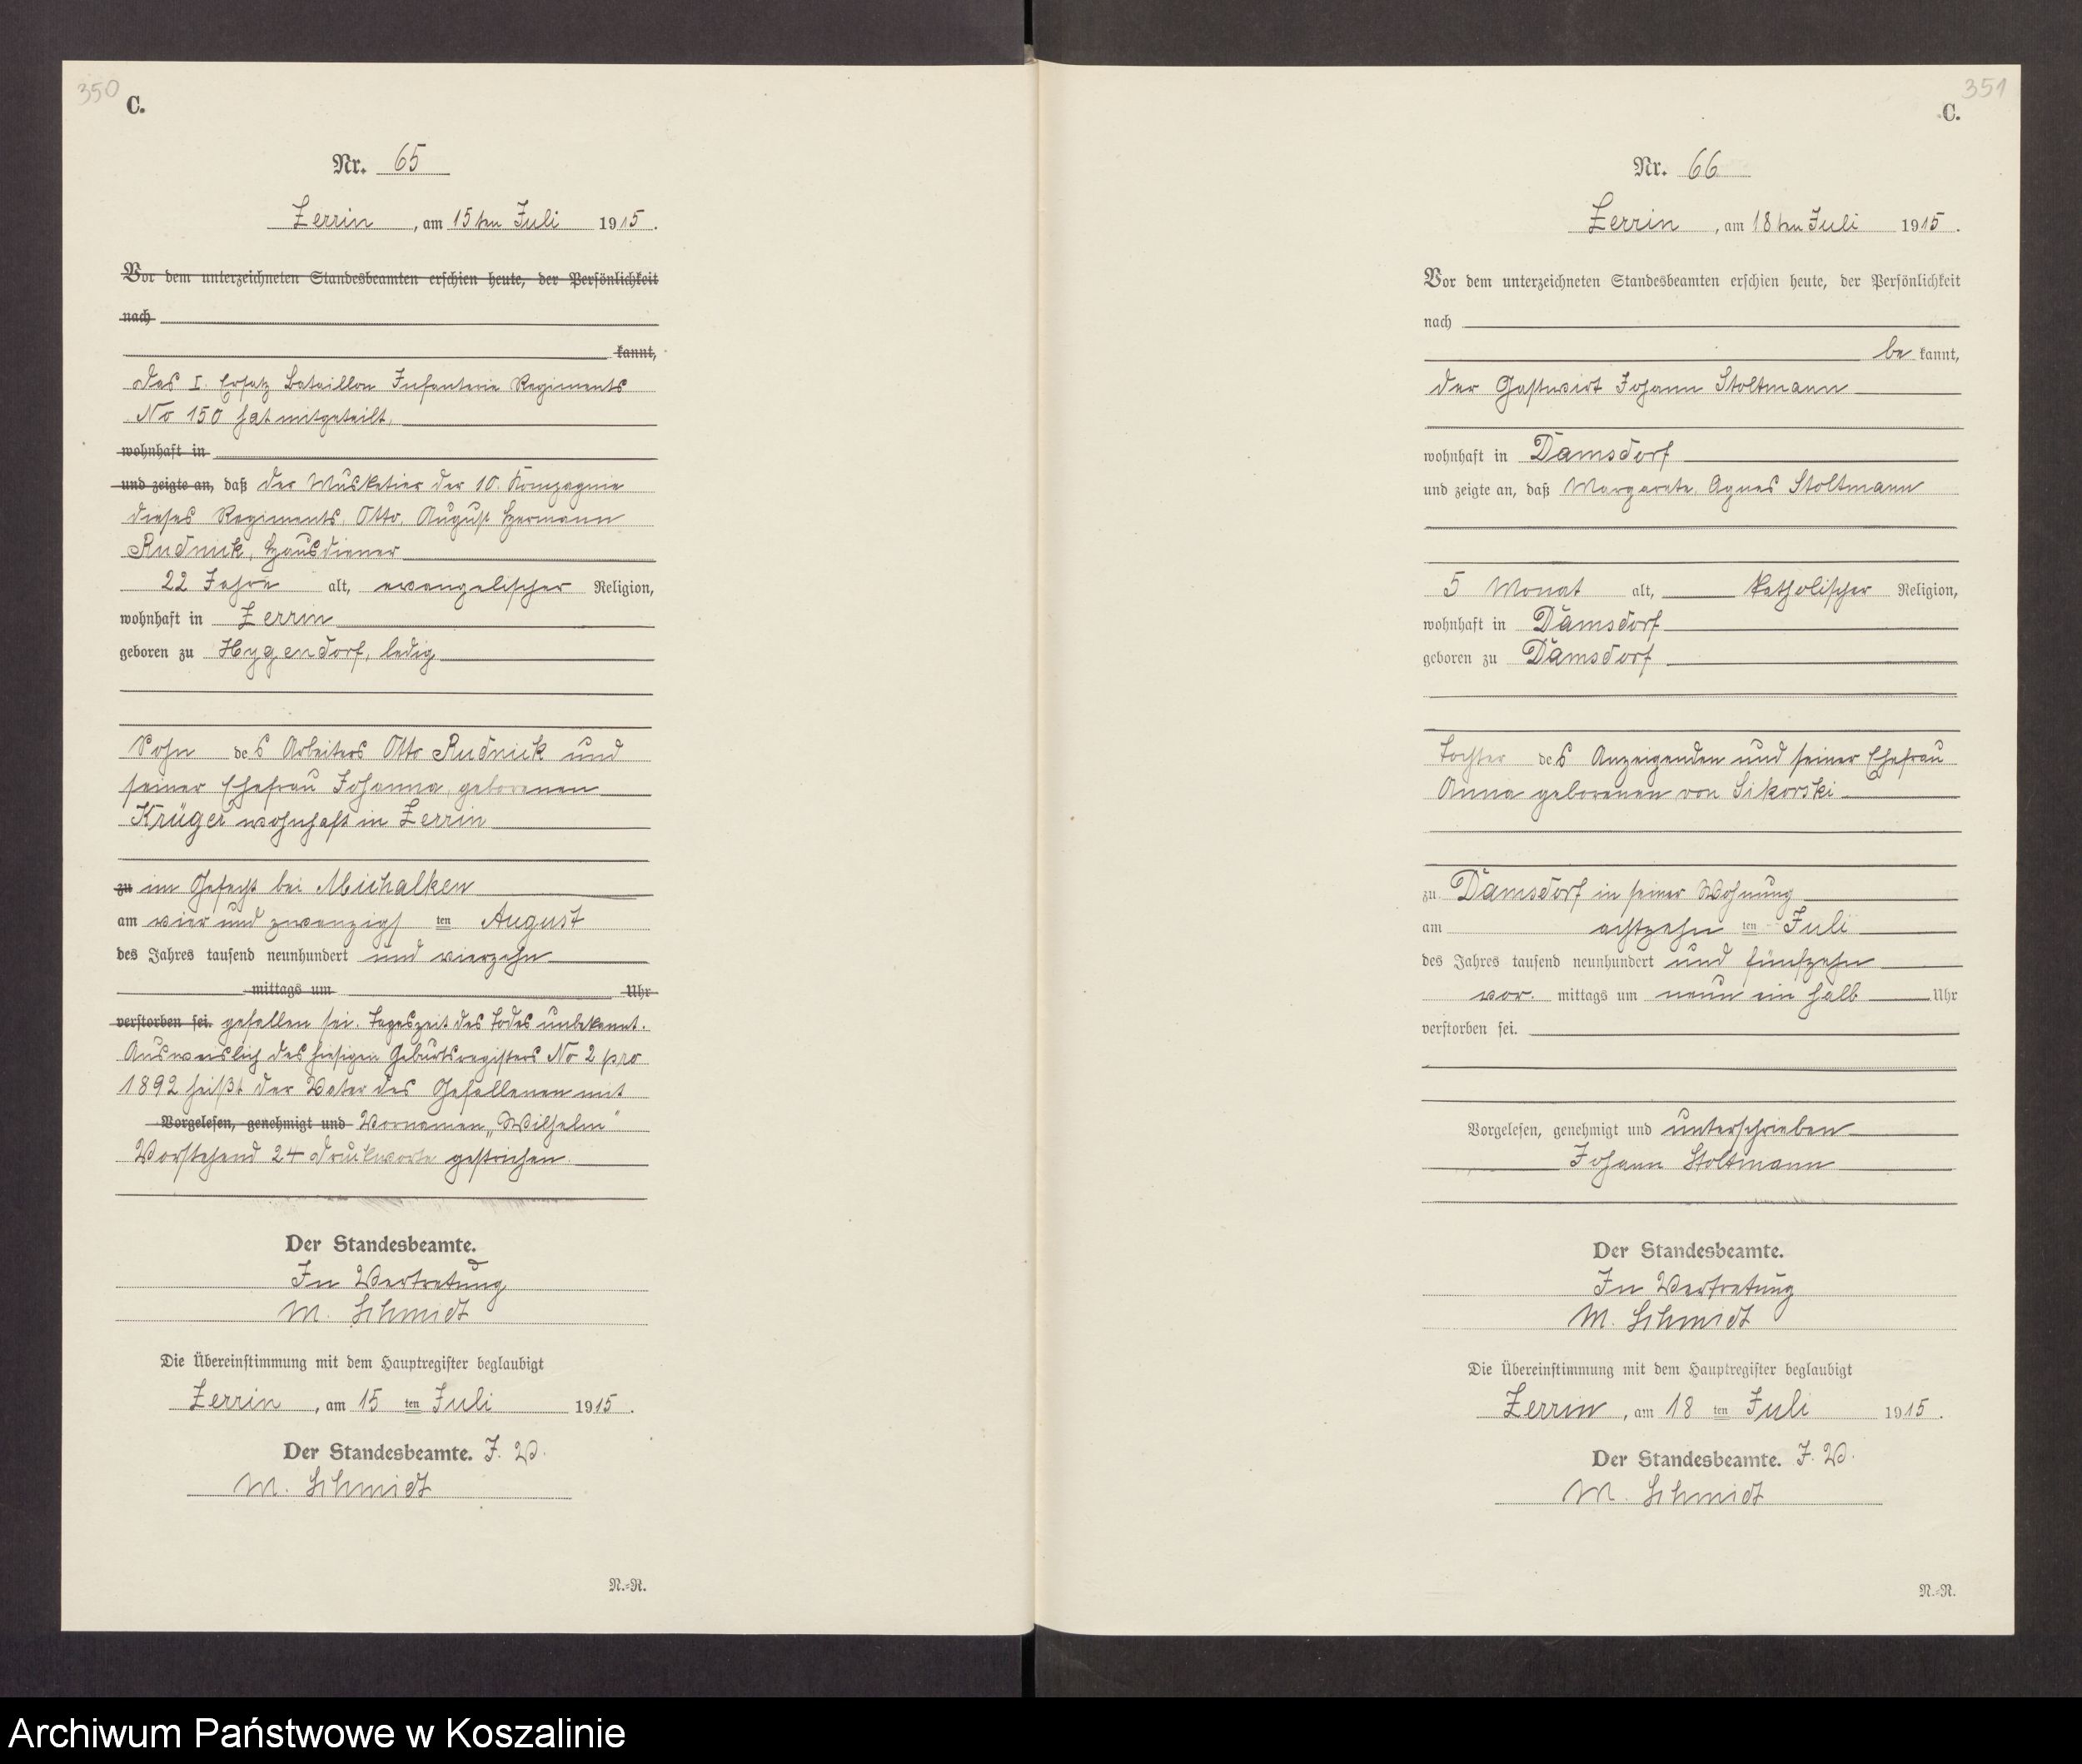 350
C.
Nr. 65
Zerrin, am 15ten Juli 1915.
Vor dem unterzeichneten Standesbeamten erschien heute, der Persönlichkeit
nach
kannt,
das I. Ersatz Bataillon Infanterie Regiments
No 150 hat mitgeteilt,
wohnhaft in
und zeigte an, daß der Musketier der 10. Kompagnie
dieses Regiments, Otto, August Hermann
Rudnick, Hausdiener
22 Jahre alt, evangelischer Religion,
wohnhaft in Zerrin
geboren zu Hygendorf, ledig
Sohn des Arbeiters Otto Rudnick und
seiner Ehefrau Johanna, geborenen
Krüger wohnhaft in Zerrin
zu im Gefecht bei Michalken
am vier und zwanzigsten August
des Jahres tausend neunhundert und vierzehn
mittags um Uhr
verstorben sei. gefallen sei. Tageszeit des Todes unbekannt.
Ausweislich des hiesigen Geburtsregisters No 2 pro
1892 heißt der Vater des Gefallenen mit
Vorgelesen, genehmigt und Vornamen „Wilhelm"
Vorstehend 24 Druckworte gestrichen.
Der Standesbeamte.
In Vertretung
M. Schmidt
Die Übereinstimmung mit dem Hauptregister beglaubigt
Zerrin, am 15 ten Juli 1915.
Der Standesbeamte. J. V.
M. Schmidt
N.-R.
351
C.
Nr. 66
Zerrin, am 18ten Juli 1915.
Vor dem unterzeichneten Standesbeamten erschien heute, der Persönlichkeit
nach
be kannt,
der Gastwirt Johann Stoltmann
wohnhaft in Damsdorf
und zeigte an, daß Margarete, Agnes Stoltmann
5 Monat alt, katholischer Religion,
wohnhaft in Damsdorf
geboren zu Damsdorf
Tochter des Anzeigenden und seiner Ehefrau
Anna geborenen von Sikorski
zu Damsdorf in seiner Wohnung
am achtzehn ten Juli
des Jahres tausend neunhundert und fünfzehn
vor mittags um neun ein halb Uhr
verstorben sei.
Vorgelesen, genehmigt und unterschrieben
Johann Stoltmann
Der Standesbeamte.
In Vertretung
M. Schmidt
Die Übereinstimmung mit dem Hauptregister beglaubigt
Zerrin, am 18 ten Juli 1915.
Der Standesbeamte. J. V.
M. Schmidt
N.-R.
Archiwum Państwowe w Koszalinie